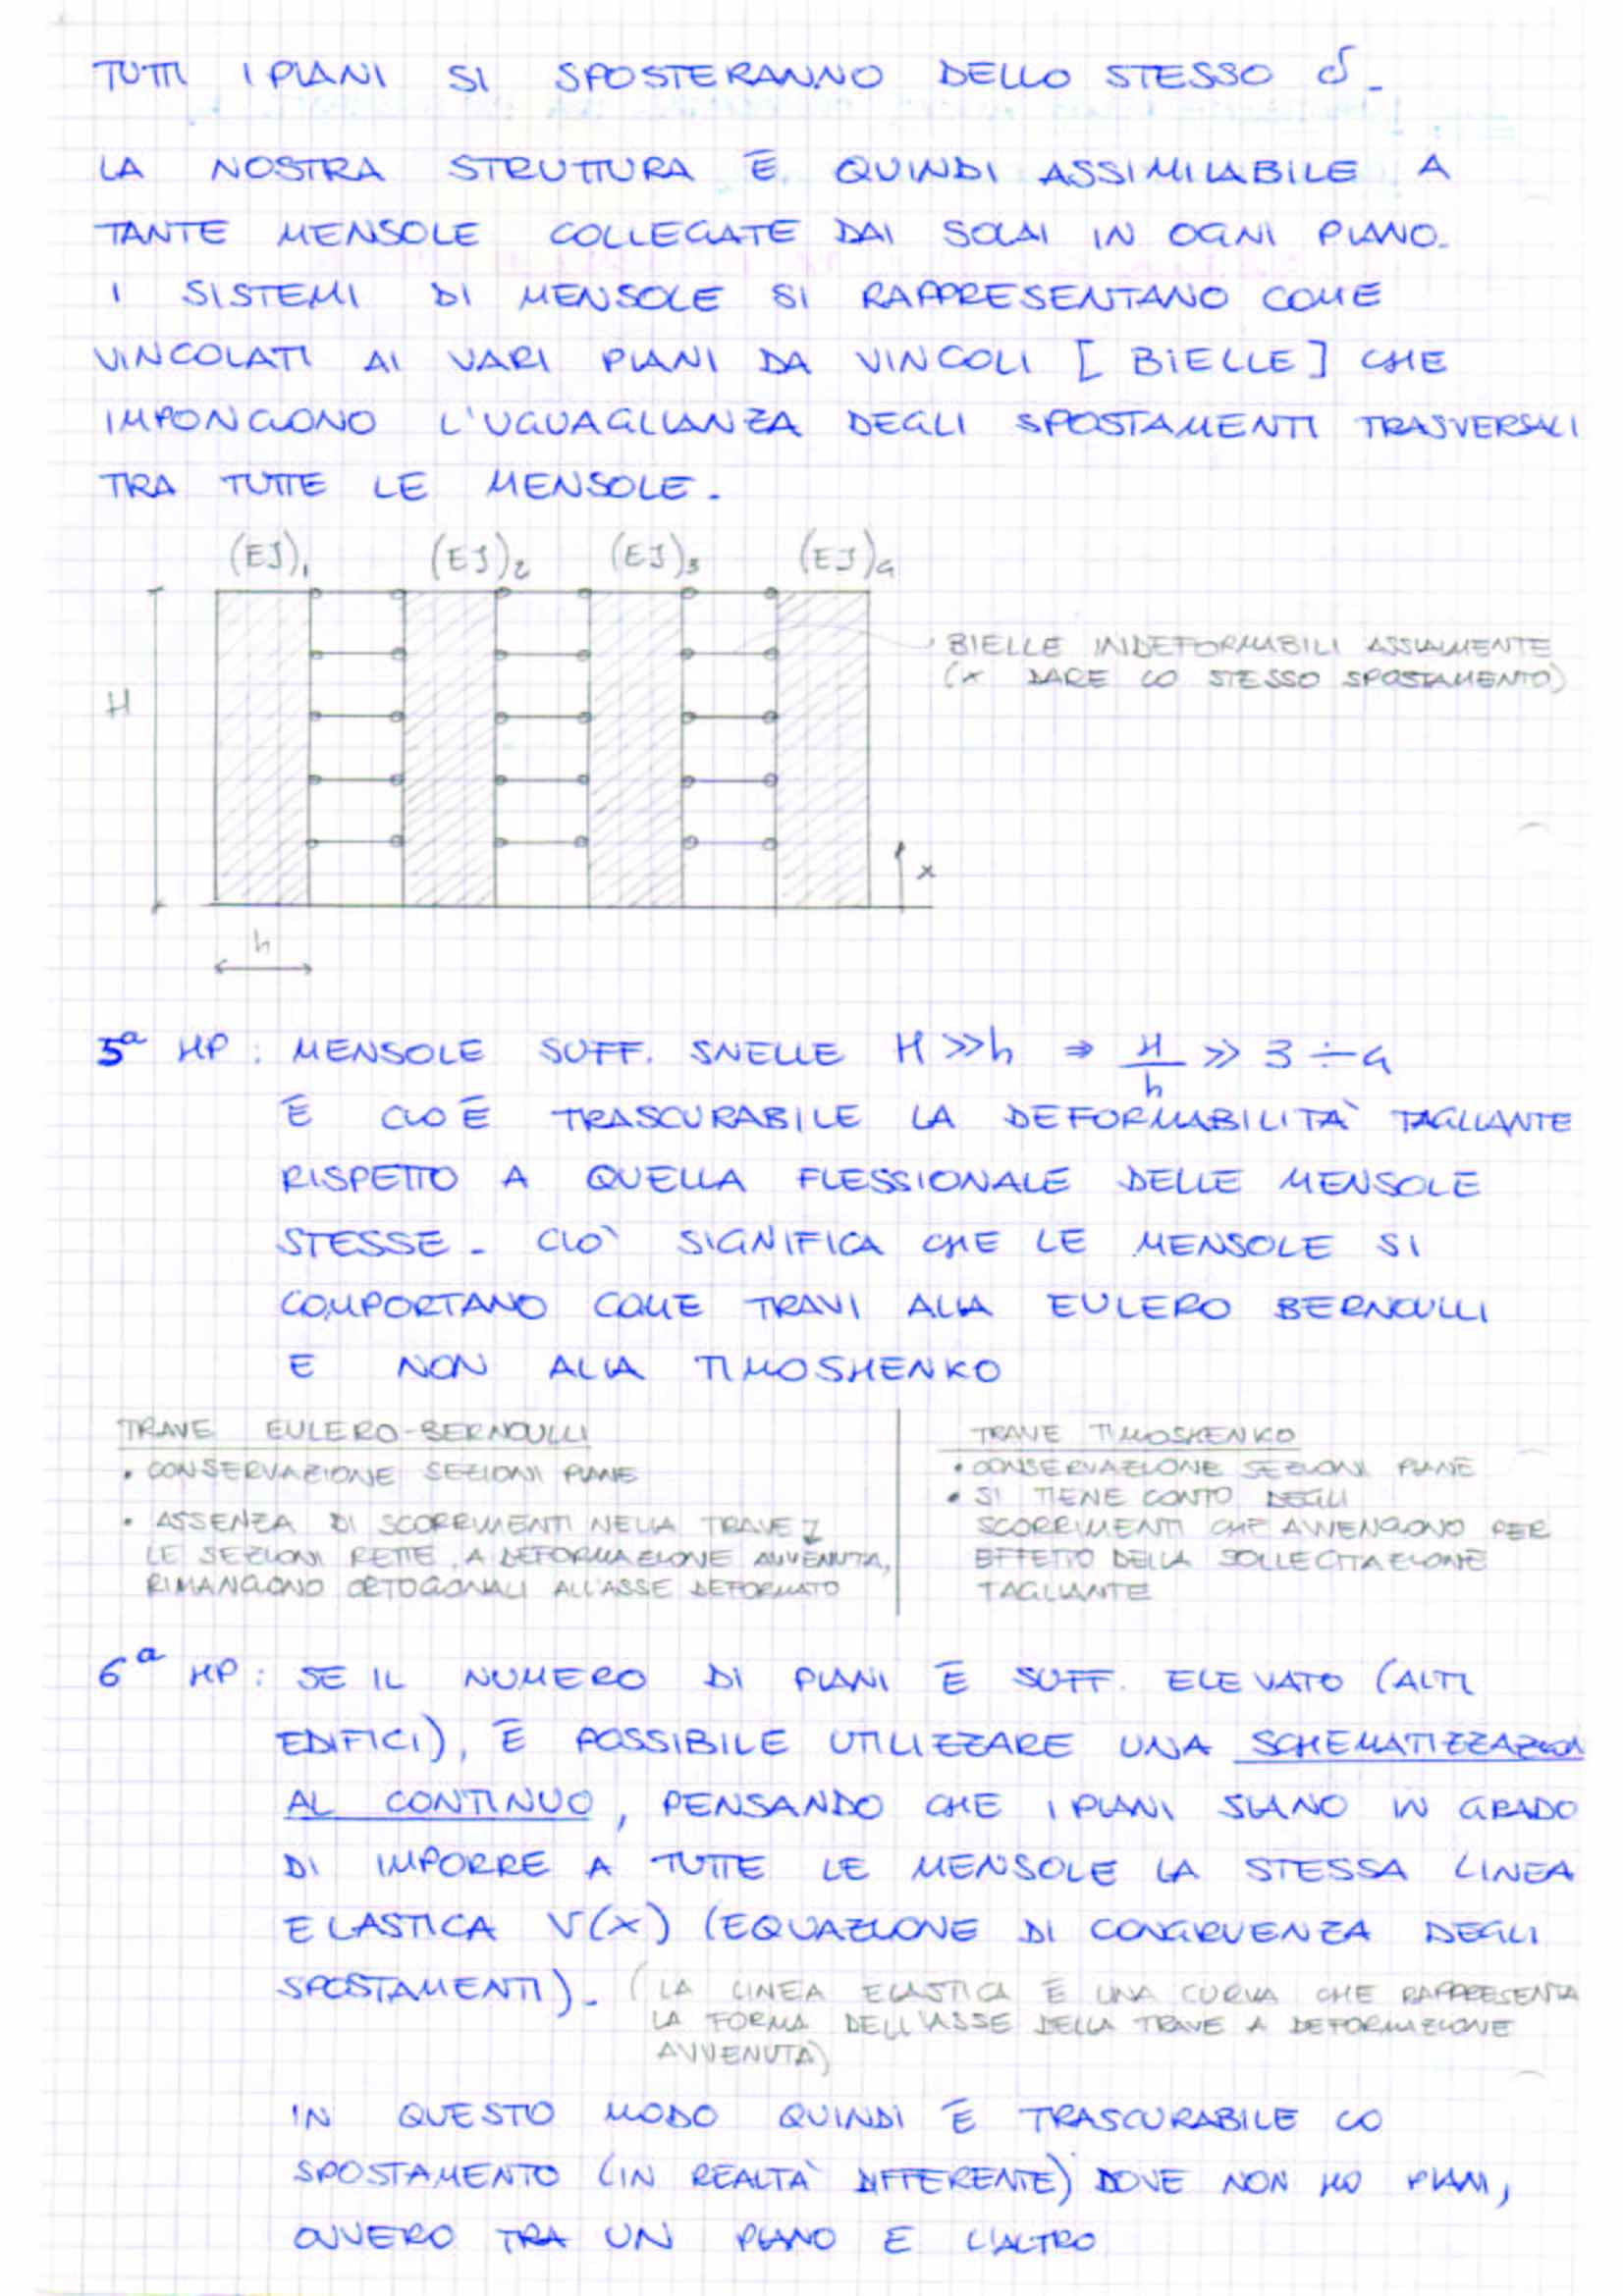 TUTTI I PIANI SI SPOSTERANNO DELLO STESSO δ.
LA NOSTRA STRUTTURA È QUINDI ASSIMILABILE A
TANTE MENSOLE COLLEGATE DAI SOLAI IN OGNI PIANO.
I SISTEMI DI MENSOLE SI RAPPRESENTANO COME
VINCOLATI AI VARI PIANI DA VINCOLI [BIELLE] CHE
IMPONGONO L'UGUAGLIANZA DEGLI SPOSTAMENTI TRASVERSALI
TRA TUTTE LE MENSOLE.
(EJ)₁ (EJ)₂ (EJ)₃ (EJ)₄
BIELLE INDEFORMABILI ASSIALMENTE
(x DARE LO STESSO SPOSTAMENTO)
H
x
h
5ª HP: MENSOLE SUFF. SNELLE H >> h ⇒ H/h >> 3 ÷ 4
E CIOÈ TRASCURABILE LA DEFORMABILITÀ TAGLIANTE
RISPETTO A QUELLA FLESSIONALE DELLE MENSOLE
STESSE. CIÒ SIGNIFICA CHE LE MENSOLE SI
COMPORTANO COME TRAVI ALLA EULERO BERNOULLI
E NON ALLA TIMOSHENKO
TRAVE EULERO-BERNOULLI
• CONSERVAZIONE SEZIONI PIANE
• ASSENZA DI SCORRIMENTI NELLA TRAVE
LE SEZIONI RETTE, A DEFORMAZIONE AVVENUTA,
RIMANGONO ORTOGONALI ALL'ASSE DEFORMATO
TRAVE TIMOSHENKO
• CONSERVAZIONE SEZIONI PIANE
• SI TIENE CONTO DEGLI
SCORRIMENTI CHE AVVENGONO PER
EFFETTO DELLA SOLLECITAZIONE
TAGLIANTE
6ª HP: SE IL NUMERO DI PIANI È SUFF. ELEVATO (ALTI
EDIFICI), È POSSIBILE UTILIZZARE UNA SCHEMATIZZAZION
AL CONTINUO, PENSANDO CHE I PIANI SIANO IN GRADO
DI IMPORRE A TUTTE LE MENSOLE LA STESSA LINEA
ELASTICA V(x) (EQUAZIONE DI CONGRUENZA DEGLI
SPOSTAMENTI). (LA LINEA ELASTICA È UNA CURVA CHE RAPPRESENTA
LA FORMA DELL'ASSE DELLA TRAVE A DEFORMAZIONE
AVVENUTA)
IN QUESTO MODO QUINDI È TRASCURABILE LO
SPOSTAMENTO (IN REALTÀ DIFFERENTE) DOVE NON HO PIANI,
OVVERO TRA UN PIANO E L'ALTRO